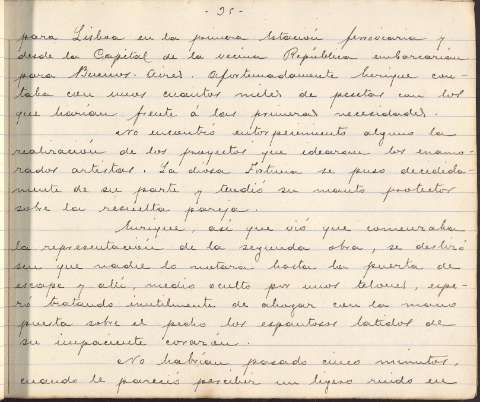 - 35 -
para Lisboa en la primera estación ferroviaria y
desde la Capital de la vecina República embarcarían
para Buenos Aires. Afortunadamente Enrique con-
taba con unos cuantos miles de pesetas con los
que harían frente á las primeras necesidades.
No encontró entorpecimiento alguno la
realización de los proyectos que idearon los enamo-
rados artistas. La diosa Fortuna se puso decidida-
mente de su parte y tendió su manto protector
sobre la resuelta pareja.
Enrique, así que vió que comenzaba
la representación de la segunda obra, se deslizó
sin que nadie lo notara hasta la puerta de
escape y allí, medio oculto por unos telones, espe-
ró tratando inutilmente de ahogar con la mano
puesta sobre el pecho los espantosos latidos de
su impaciente corazón.
No habrían pasado cinco minutos,
cuando le pareció percibir un ligero ruido en